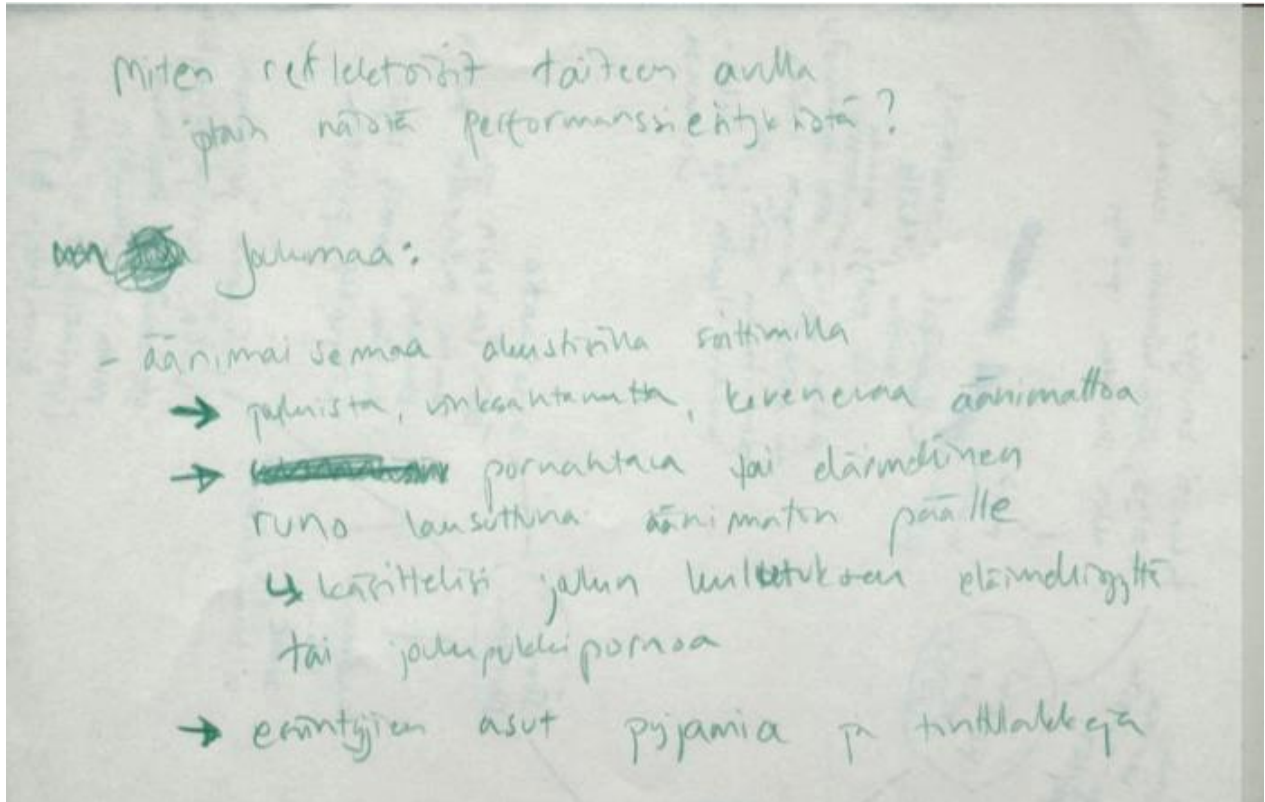 Miten reflektoisit taiteen avulla
jotain näistä performanssiehtyksistä?
Joulumaa:
- äänimaisemaa akustisilla soittimilla
→ jouluista, vinksahtanutta, kevenevää äänimattoa
→ pornahtava tai eläimellinen
runo lausuttuna äänimaton päälle
↳ käsittelisi joulun kulutuksen eläimellisyyttä
tai joulupukkipornoa
→ esiintyjien asut pyjamia ja tonttulakkeja